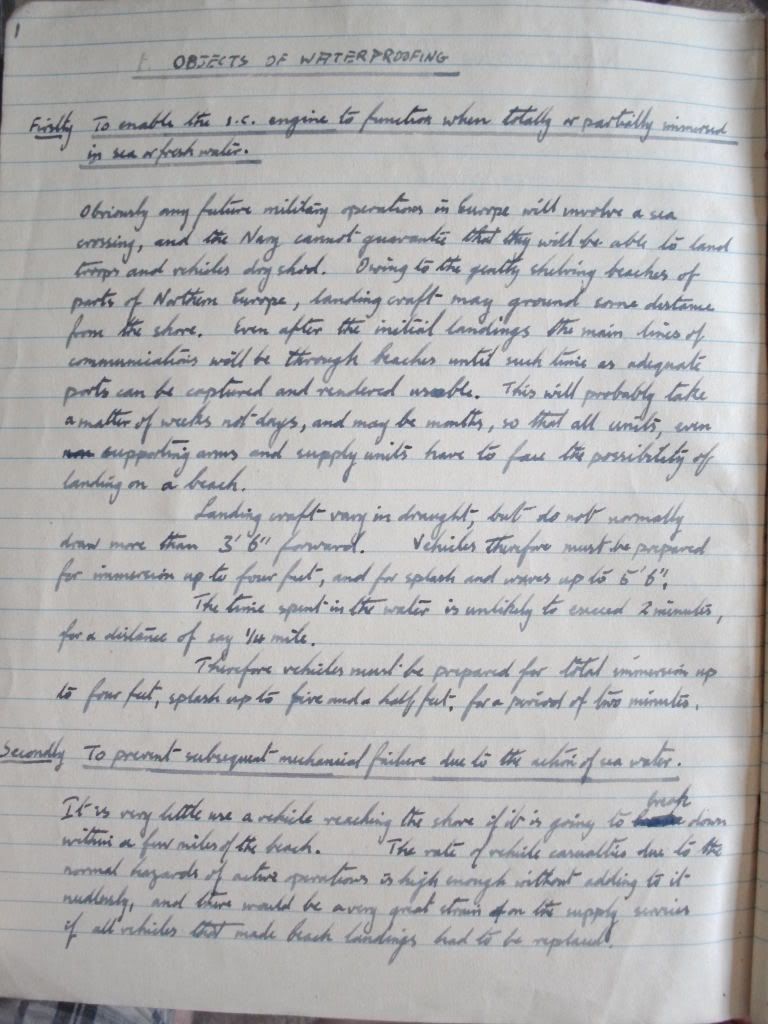 1
1. OBJECTS OF WATERPROOFING
Firstly To enable the I.C. engine to function when totally or partially immersed
in sea or fresh water.
Obviously any future military operations in Europe will involve a sea
crossing, and the Navy cannot guarantee that they will be able to land
troops and vehicles dry shod. Owing to the gently shelving beaches of
parts of Northern Europe, landing craft may ground some distance
from the shore. Even after the initial landings the main lines of
communications will be through beaches until such time as adequate
ports can be captured and rendered usable. This will probably take
a matter of weeks not days, and may be months, so that all units, even
supporting arms and supply units have to face the possibility of
landing on a beach.
Landing craft vary in draught, but do not normally
draw more than 3' 6" forward. Vehicles therefore must be prepared
for immersion up to four feet, and for splash and waves up to 5' 6".
The time spent in the water is unlikely to exceed 2 minutes,
for a distance of say 1/4 mile.
Therefore vehicles must be prepared for total immersion up
to four feet, splash up to five and a half feet, for a period of two minutes.
Secondly To prevent subsequent mechanical failure due to the action of sea water.
It is very little use a vehicle reaching the shore if it is going to break down
within a few miles of the beach. The rate of vehicle casualties due to the
normal hazards of active operations is high enough without adding to it
needlessly, and there would be a very great strain on the supply services
if all vehicles that made beach landings had to be replaced.